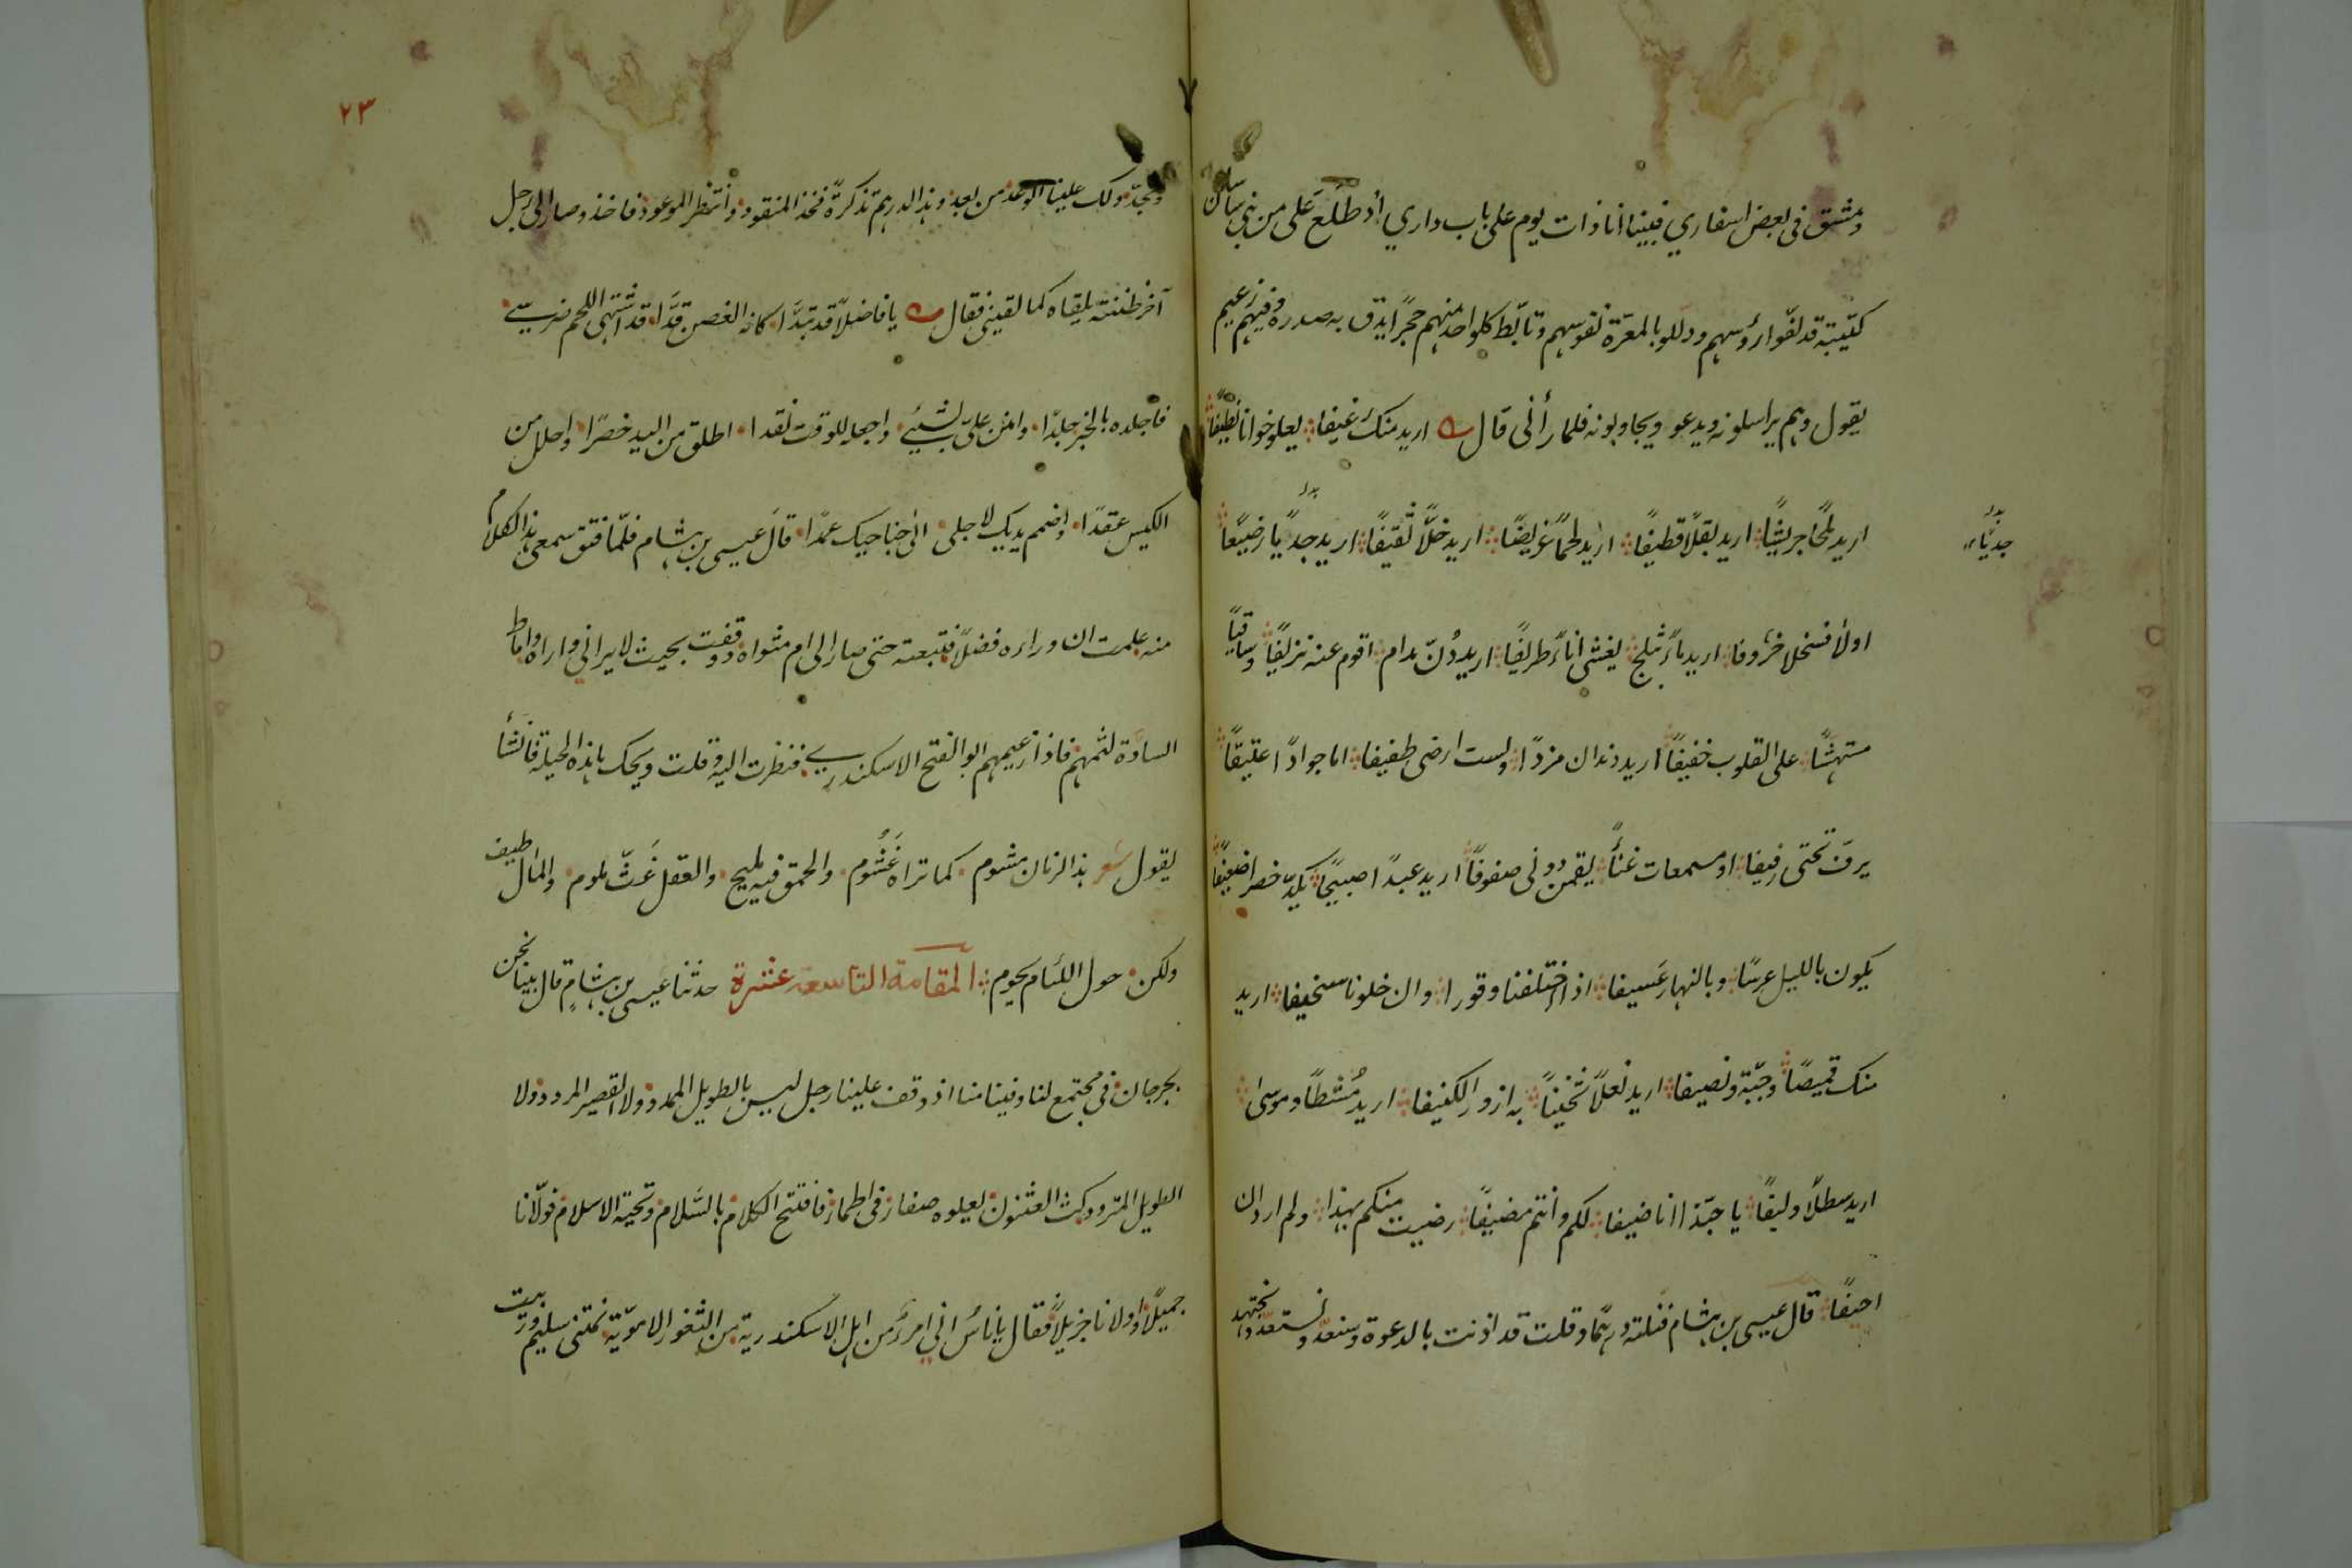 دمشق فى بعض اسفاري فبينا انا ذات يوم على باب داري اذ طَلَعَ عَلى من بني ساسان
كتيبته قد لفّوا رؤسهم ودللو بالمعرّة نفوسهم وتأبّط كلواحد منهم حجرًا يدق به صدره وفيهم زعيم
يقول وهم يراسلونه ويدعو ويجاوبونه فلما رأنى قال اريد منك رغيفا يعلو خوانا نظيفًا
اريد ملحًا جريشًا اريد بقلًا قطيفًا اريد لحمًا غريضًا اريد خلًّا ثقيفًا اريد جديًا رضيعًا
جديًا
اولا فسخلا خروفا اريد ماءً بثلج يغشى اناءً طريفًا اريد دُنّ مدام اقوم عنه نزيفًا وساقيًا
مستهشًا على القلوب خفيفًا اريد دندان مزدًا ولست ارضى طفيفا اما جوادًا عتيقًا
يرفّ تحتى رفيفا او مسمعات غناءً يقمن دونى صفوفًا اريد عبدًا صبيحًا يكدّ خصرا ضعيفًا
يكون بالليل عرسًا وبالنهار عَسيفا اذا اختلفنا وقورا وان خلونا سخيفا اريد
منك قميصًا وجبّة ونصيفا اريد نعلًا ثخينًا به ازور الكنيفا اريد مُشطًا وموسىٰ
اريد سطلًا وليفًا يا حبّذا انا ضيفا لكم وأنتم مضيفًا رضيت منكم بهذا ولم ارد ان
احيفًا قال عيسى بن هشام فنلته درهمًا وقلت قد اذنت بالدعوة وسنعدّ ونستعدّ ونجتهد
٢٣
ونجدّ ولك علينا الوعد من بعد وهذا الدرهم تذكرةً فخذ المنقود وانتظر الموعود فاخذه وصار الى رجل
آخر ظننته يلقاه كما لقيني فقال يا فاضلًا قد تبدَّا كانه الغصن قدَّا قد اشتهى اللحم ضرسي
فاجلده بالخبز جلدًا وامنن علىّ بشيئ واجعله للوقت نقدا اطلق من اليد خصرًا واحلل من
الكيس عقدًا واضمم يديك لاجلى الى جناحيك عمدًا قال عيسى بن هشام فلمّا فتق سمعى هذا الكلام
منه علمت ان وراءه فضلًا فتبعته حتى صار الى ام مثواه ووقفت بحيث لا يراني واراه واماط
السادة لثمهم فاذا زعيمهم ابو الفتح الاسكندري فنظرت اليه وقلت ويحك ما هذه الحيلة فانشأ
يقول شعر هذا الزمان مشوم كما تراه غَشُوم والحمق فيه مليح والعقل غَثّ ملوم والمال طيف
ولكن حول اللئام يحوم المقامة التاسعة عشرة حدثنا عيسى بن هشامٍ قال بينا نحن
بجرجان فى مجتمع لنا وفينا منا اذ وقف علينا رجل ليس بالطويل الممدود ولا القصير المردود ولا
الطويل المتردد كث العثنون يعلوه صفار فى اطمار فافتتح الكلام بالسَّلام وتحية الاسلام فولّانا
جميلًا واولانا جزيلًا فقال ياناسُ اني امرؤ من اهل الاسكندرية من الثغور الامويّة نمتنى سليم ورحبت